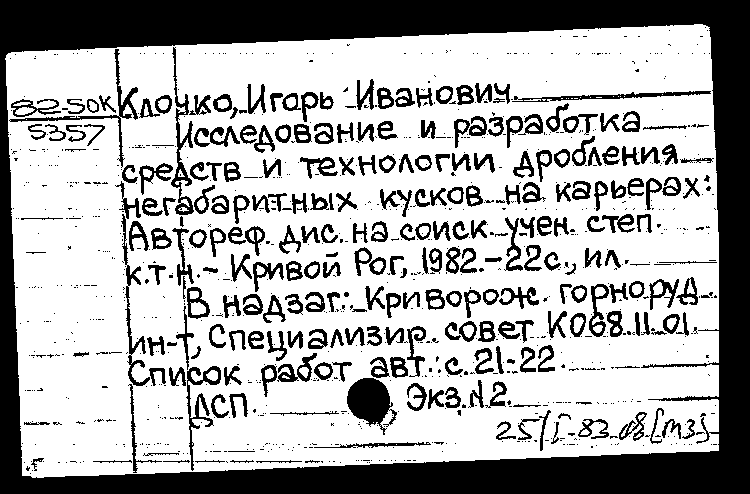 82-50К Клочко, Игорь Иванович.
5357 Исследование и разработка
средств и технологии дробления
негабаритных кусков на карьерах:
Автореф. дис. на соиск. учен. степ.
к.т.н.- Кривой Рог, 1982.-22с., ил.
В надзаг: Криворож. горноруд.
ин-т, Специализир. совет К068.11.01.
Список работ авт.: с. 21-22.
ДСП. Экз. N2.
25/I-83